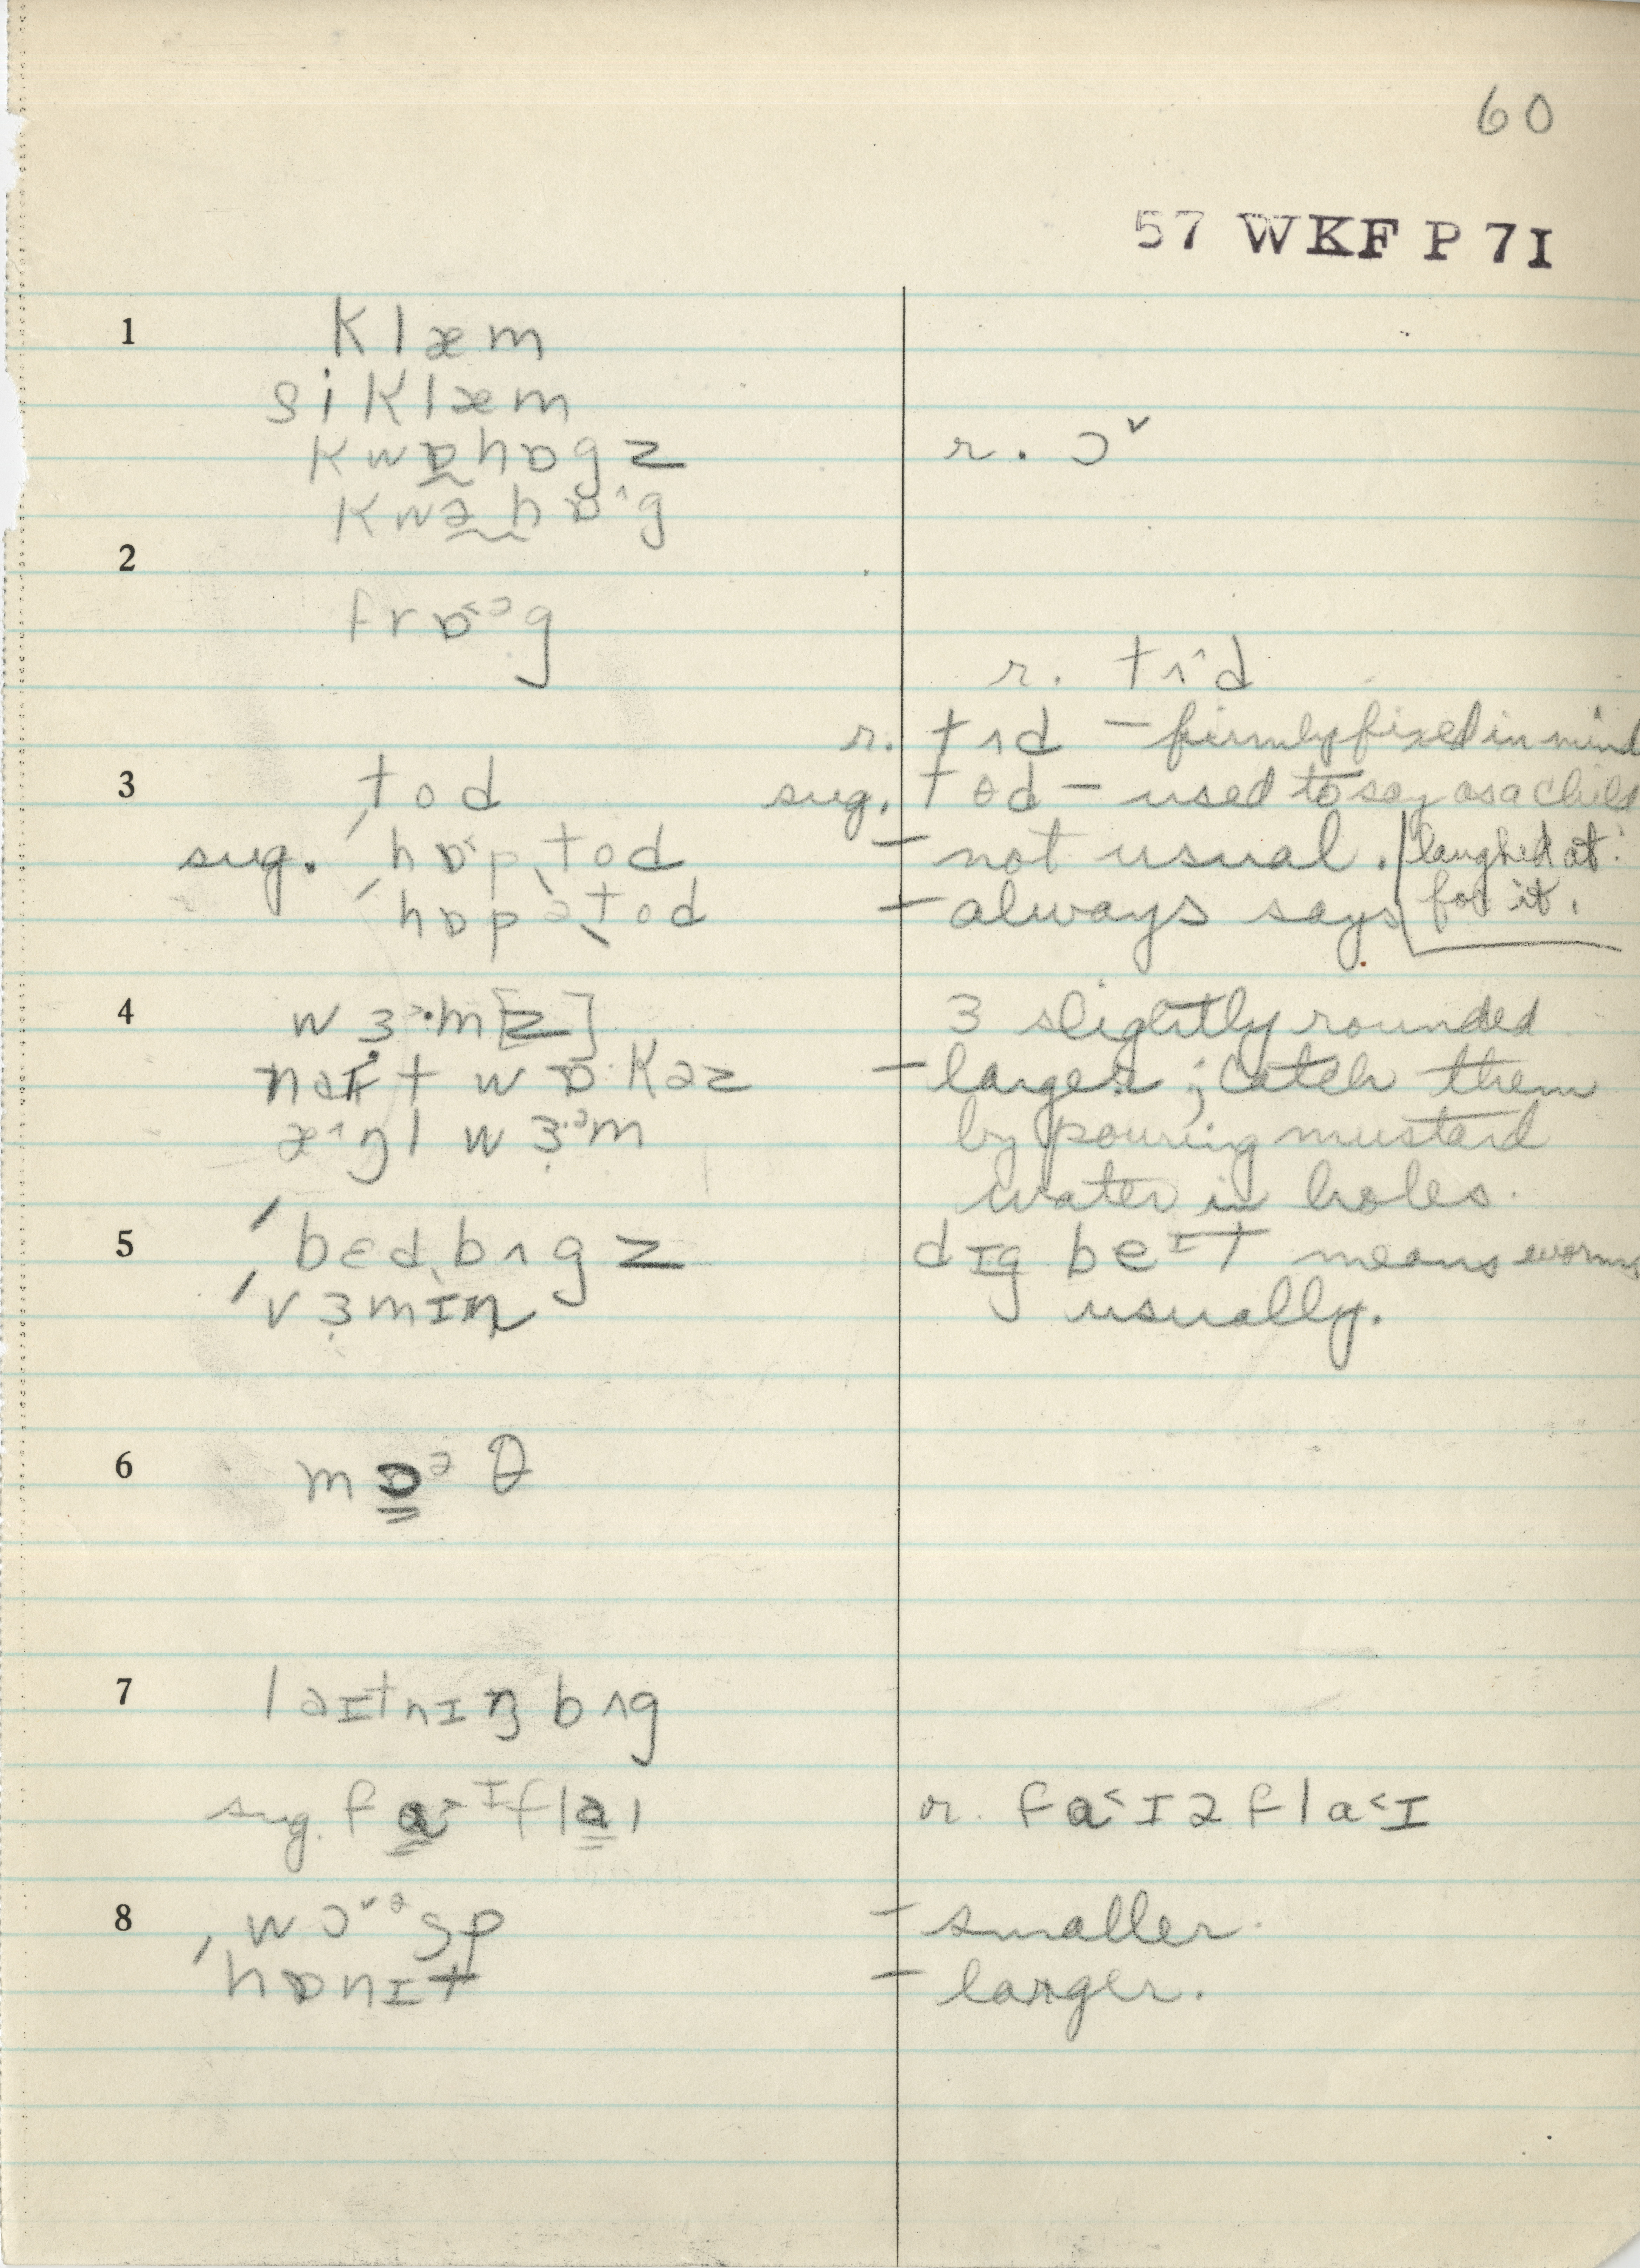 60
57 WKF P 7I
1 klæm
siklæm
kwɒ̰hɒgz r. ɔ˅
kwə̰hɒ^g
2
frɒ˂ᵓg
r. tʌ^d
r. tʌd – firmly fixed in mind
3 tod sug. tɵd – used to say as a child
sug. ˈhɒ˂pˌtod – not usual. laughed at
ˈhɒpəˌtod – always says for it.
4 wɜᵊ·m[z] ɜ slightly rounded
naɪt wɒ·kəz – larger; catch them
æ^ŋl wɜ·ᵊm by pouring mustard
water in holes.
5 ˈbɛdˌbʌgz dɪg beᶦt means worms
ˈvɜmɪn usually.
6 mɒ̳ᵊθ
7 ləɪtnɪŋ bʌg
sug. fa̳˃ᶦfla̳ɪ r. fa˂ɪəfla˂ɪ
8 ˈwɔ˅ᵊsp – smaller.
ˈhɒnɪt – larger.